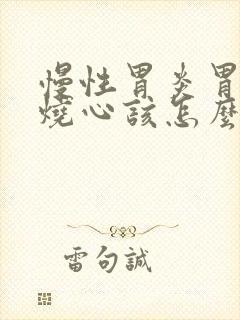 慢性胃炎胃
燒心該怎麼
雷句誠